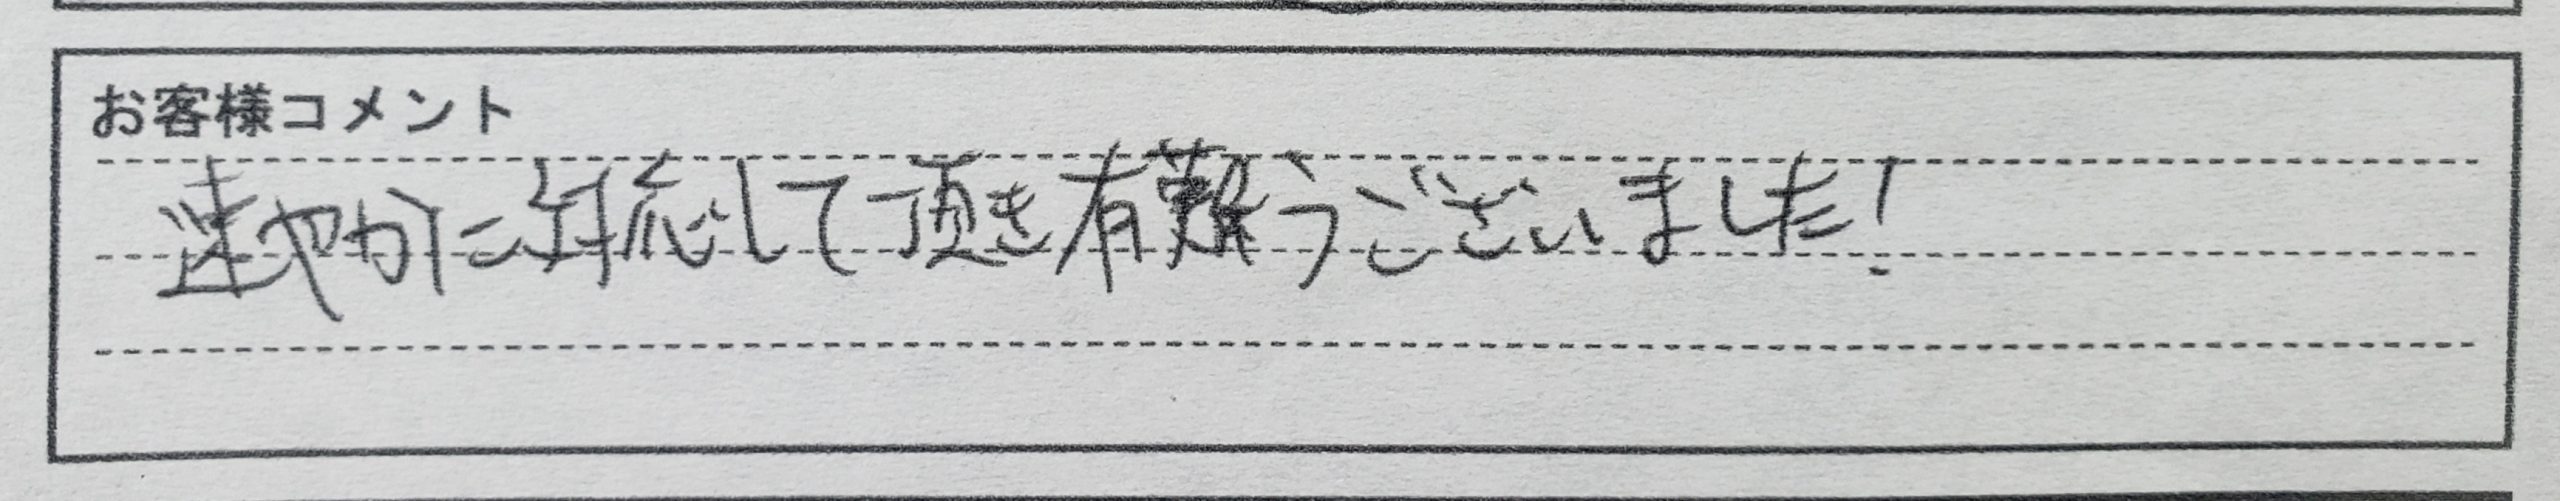 お客様コメント
速やかに対応して頂き有難うございました!